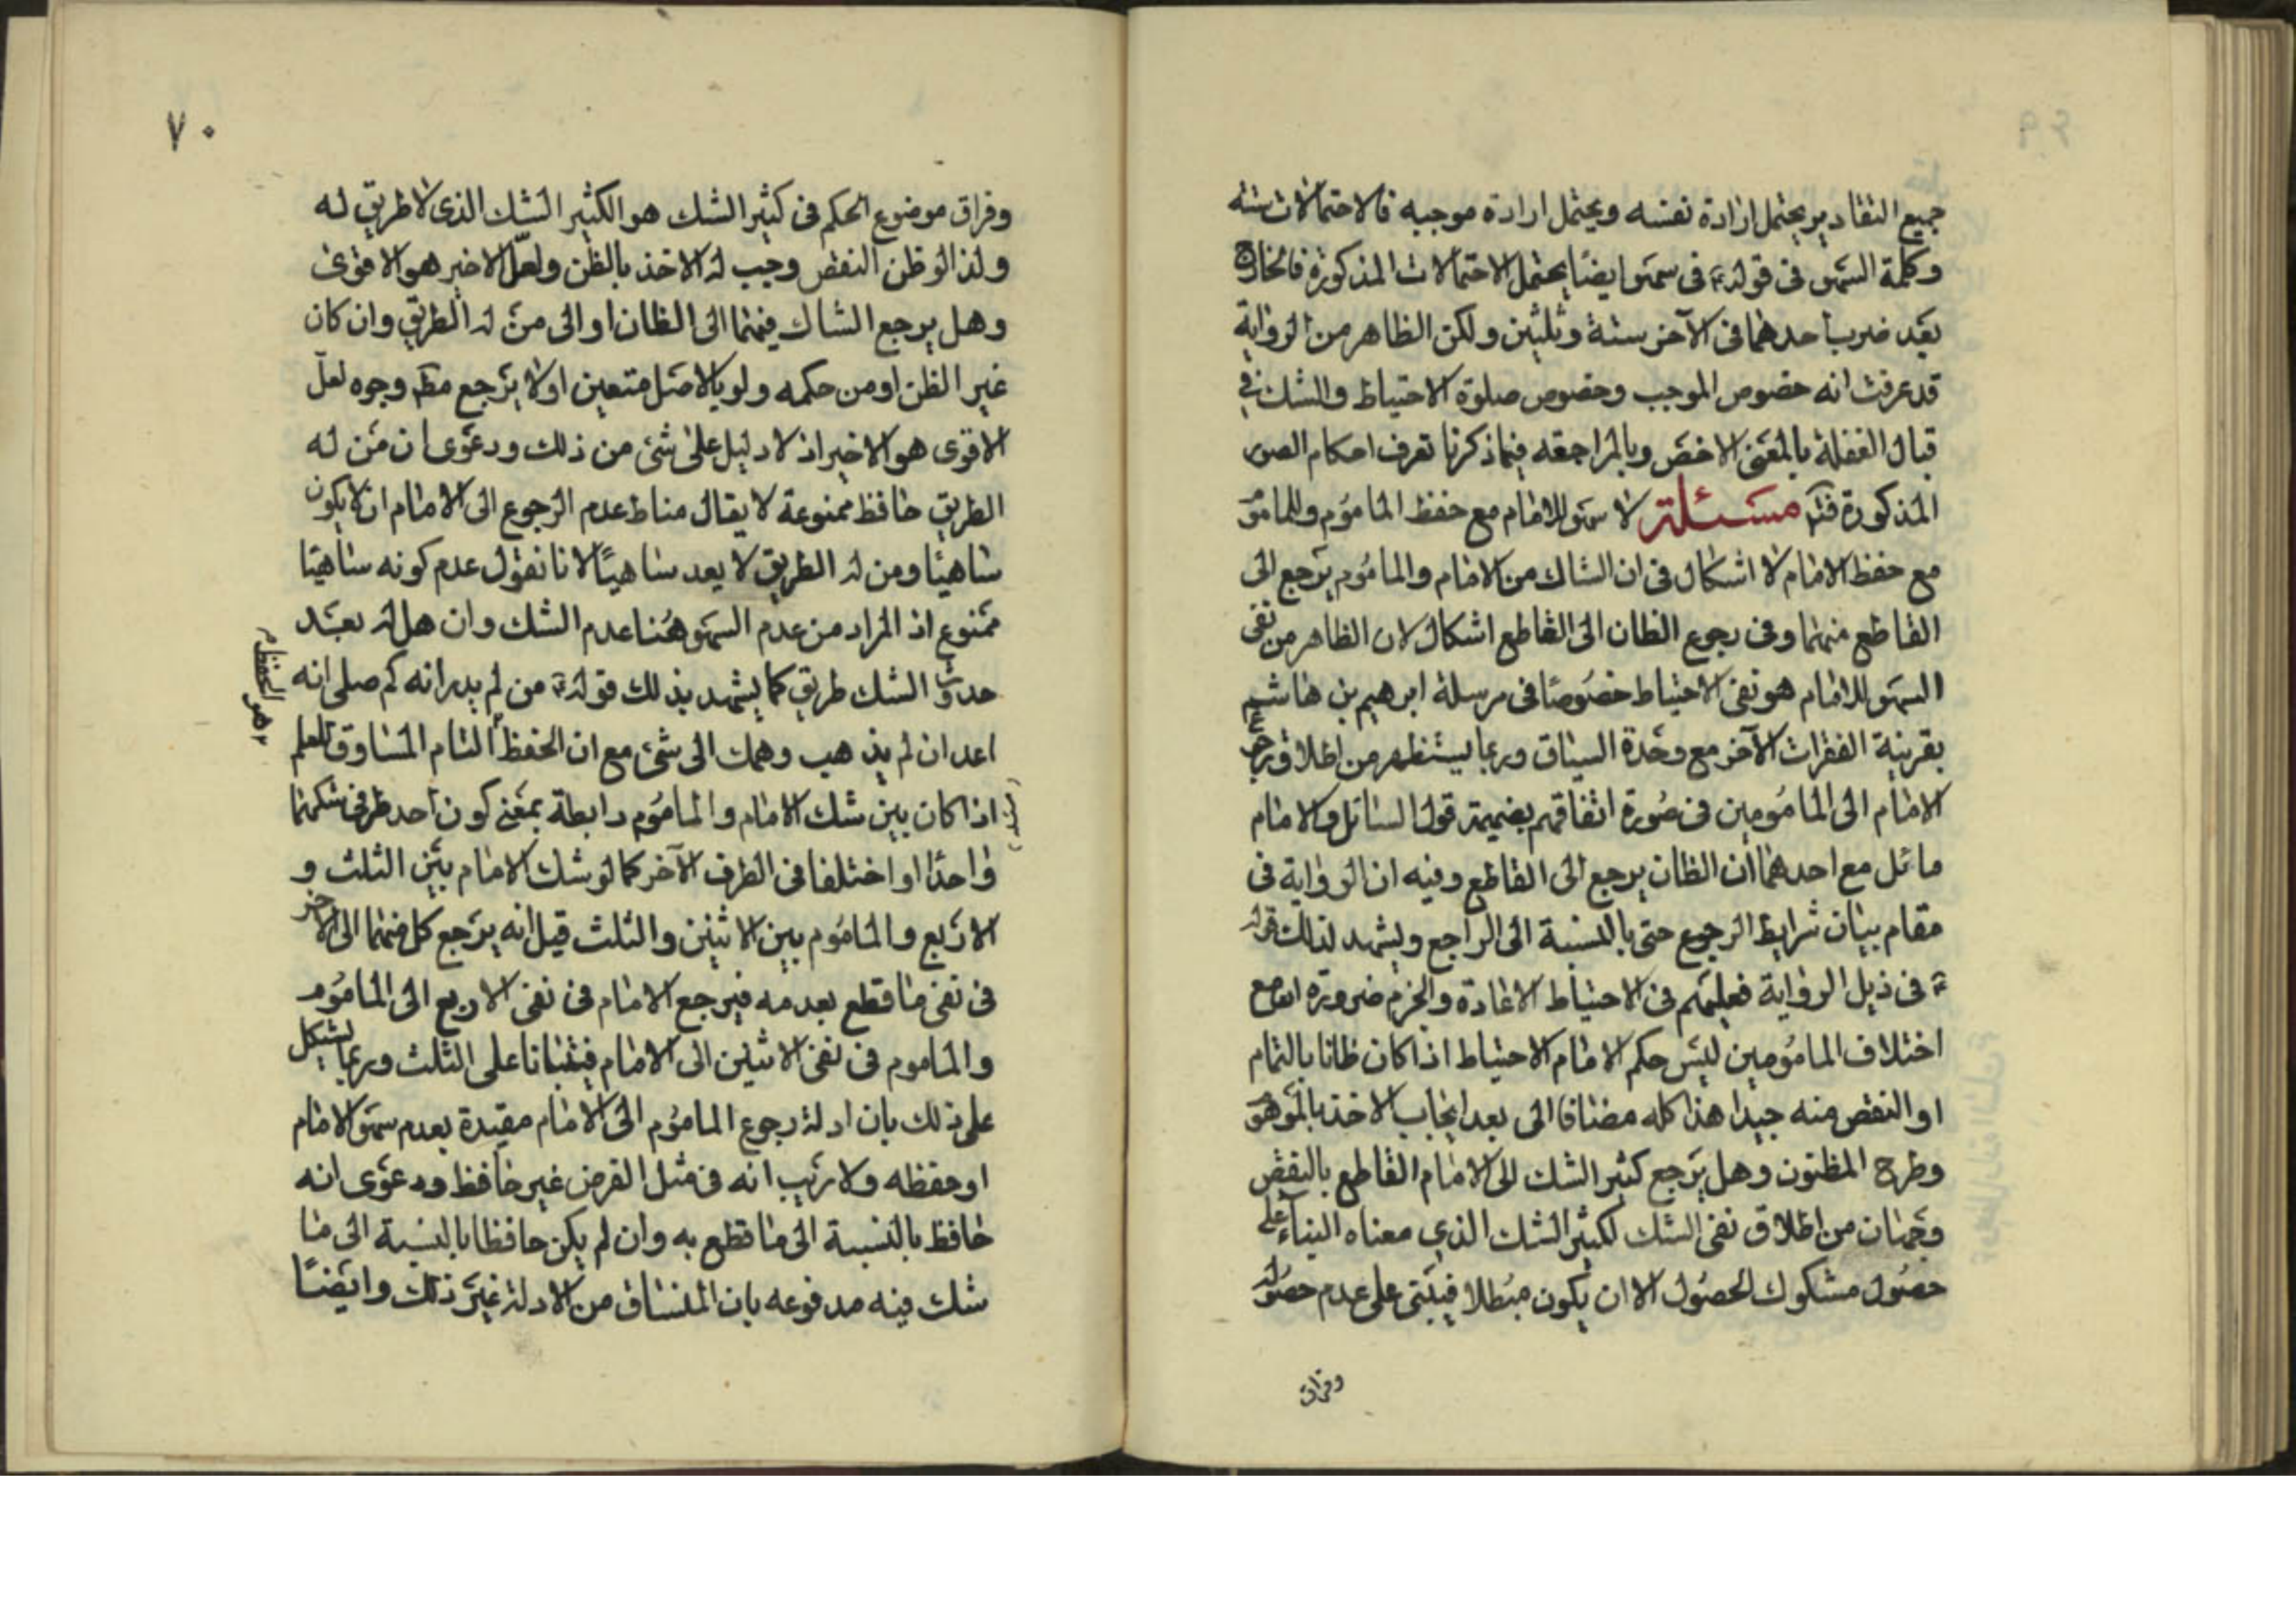 جميع التقادير يحتمل ارادة نفسه ويحتمل ارادة موجبه فالاحتمالات ستة
وكلمة السهو في قوله ع في سهو ايضا يحتمل الاحتمالات المذكورة فالخارج
بعد ضرب احدهما في الآخر ستة وثلثين ولكن الظاهر من الرواية
قد عرفت انه خصوص الموجب وخصوص صلوة الاحتياط والشك في
قبال الغفلة بالمعنى الاخص وبالمراجعه فيما ذكرنا تعرف احكام الصور
المذكورة فتم مسئلة لا سهو للامام مع حفظ الماموم وللماموم
مع حفظ الامام لا اشكال في ان الشاك من الامام والماموم يرجع الى
القاطع منهما وفي رجوع الظان الى القاطع اشكال لان الظاهر من نفى
السهو للامام هو نفى الاحتياط خصوصا في مرسلة ابرهيم بن هاشم
بقرينة الفقرات الآخر مع وحدة السياق وربما يستظهر من اطلاق رجوع
الامام الى المامومين في صورة اتفاقهم بضميمة قول السائل والامام
مائل مع احدهما ان الظان يرجع الى القاطع وفيه ان الرواية في
مقام بيان شرايط الرجوع حتى بالنسبة الى الراجع ويشهد لذلك قوله
ع في ذيل الرواية فعليهم في الاحتياط الاعادة والجزم ضرورة انه مع
اختلاف المامومين ليس حكم الامام الاحتياط اذا كان ظانا بالتمام
او النقص منه جيدا هذا كله مضافا الى بعد ايجاب الاخذ بالموهوم
وطرح المظنون وهل يرجع كثير الشك الى الامام القاطع بالنقص
وجهان من اطلاق نفى الشك لكثير الشك الذي معناه البناء على
حصول مشكوك الحصول الا ان يكون مبطلا فيبنى على عدم حصوله
وفراق
٧٠
وفراق موضوع الحكم في كثير الشك هو الكثير الشك الذى لا طريق له
ولذا لو ظن النقص وجب له الاخذ بالظن ولعل الاخير هو الاقوى
وهل يرجع الشاك منهما الى الظان او الى من له الطريق وان كان
غير الظن او من حكمه ولو بالاصل متعين او لا يرجع مطم وجوه لعل
الاقوى هو الاخير اذ لا دليل على شئ من ذلك ودعوى ان من له
الطريق حافظ ممنوعة لا يقال مناط عدم الرجوع الى الامام ان لا يكون
ساهيا ومن له الطريق لا يعد ساهيًا لانا نقول عدم كونه ساهيا
ممنوع اذ المراد من عدم السهو هنا عدم الشك وان هل له بعد
حدوث الشك طريق كما يشهد بذلك قوله ع من لم يدر انه كم صلى انه
اعد ان لم يذهب وهمك الى شئ مع ان الحفظ التام المساوق للعلم
وهو الحفظ م
اذا كان بين شك الامام والماموم رابطة بمعنى كون احد طرفى شكهما
واحدًا او اختلفا في الطرف الآخر كما لو شك الامام بين الثلث و
الاربع والماموم بين الاثنين والثلث قيل انه يرجع كل منهما الى الاخر
في نفى ما قطع بعدمه فيرجع الامام في نفى الاربع الى الماموم
والماموم في نفى الاثنين الى الامام فيبنيانا على الثلث وربما يشكل
على ذلك بان ادلة رجوع الماموم الى الامام مقيدة بعدم سهو الامام
او حفظه ولا ريب انه في مثل الفرض غير حافظ ودعوى انه
حافظ بالنسبة الى ما قطع به وان لم يكن حافظا بالنسبة الى ما
شك فيه مدفوعه بان المنساق من الادلة غير ذلك وايضًا